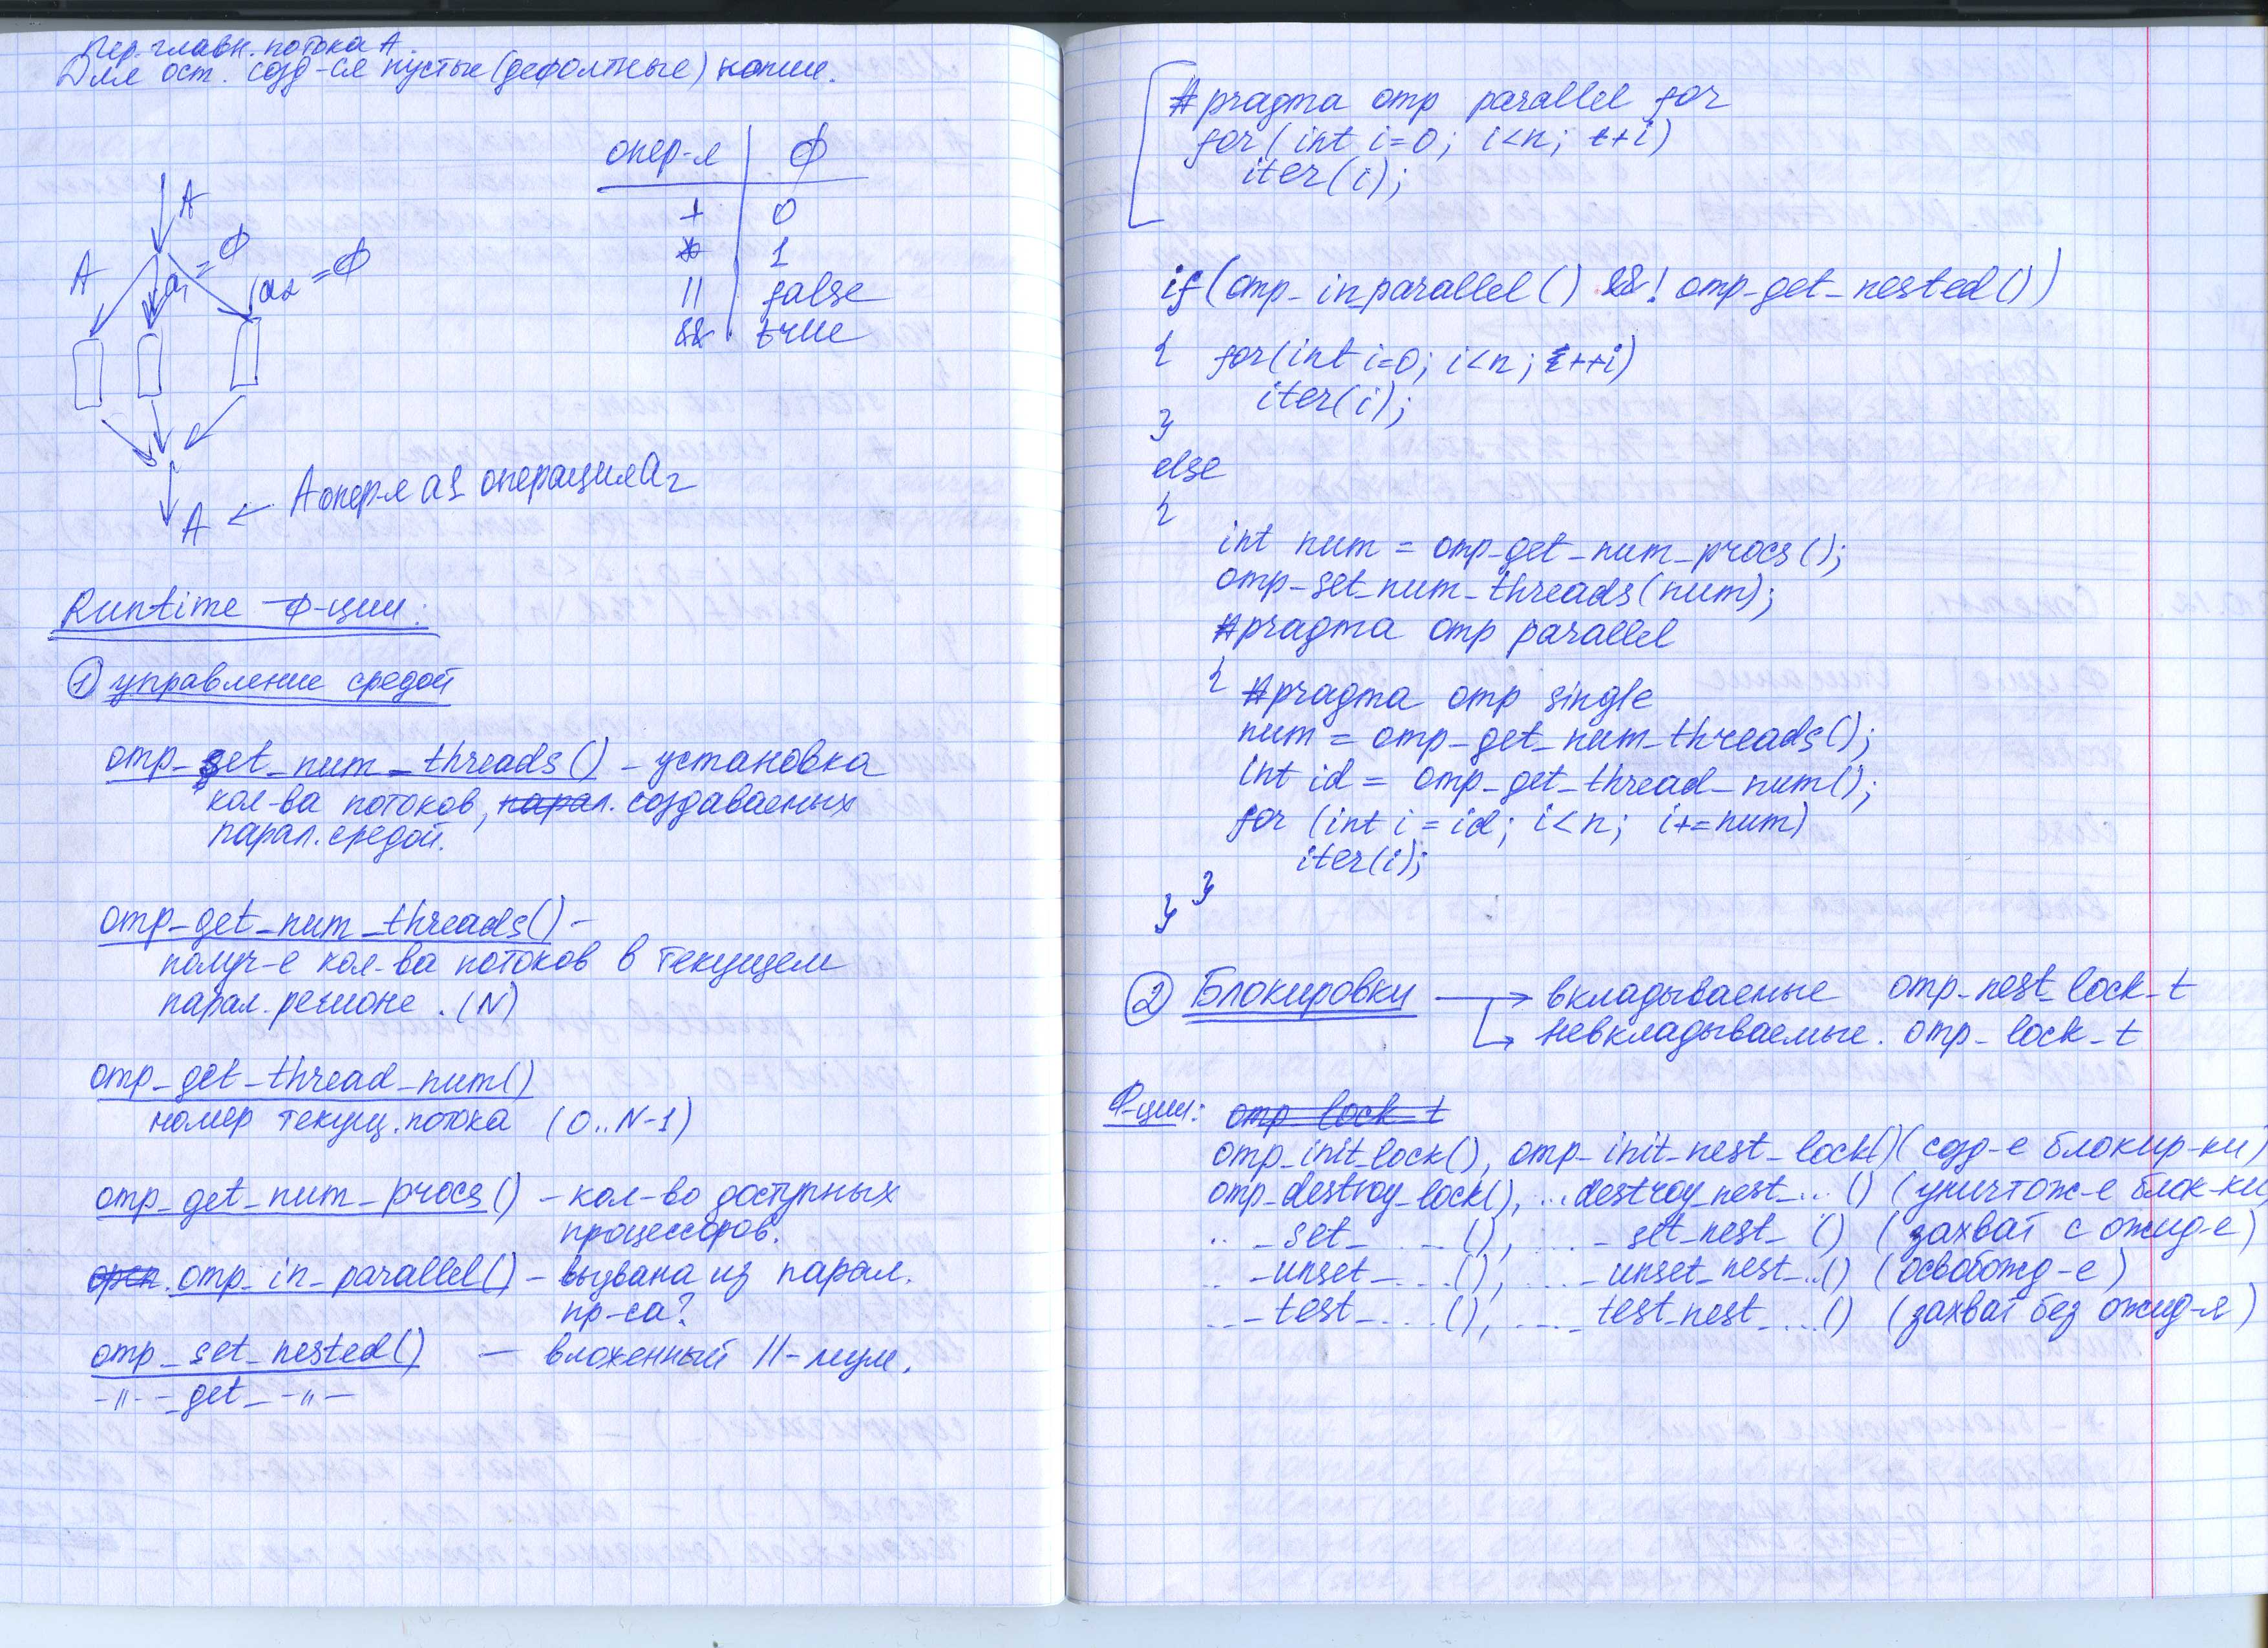 Пер. главн. потока A.
Для ост. созд-ся пустые (дефолтные) копии.
опер-я | Ф
+ | 0
* | 1
|| | false
&& | true
A
A
a1 = Ф
a2 = Ф
A ← A опер-я a1 операция a2
Runtime ф-ции:
① управление средой
omp_set_num_threads() – установка
кол-ва потоков, парал. создаваемых
парал. средой.
omp_get_num_threads() –
получ-е кол-ва потоков в текущем
парал. регионе. (N)
omp_get_thread_num()
номер текущ. потока (0..N-1)
omp_get_num_procs() – кол-во доступных
процессоров.
omp_in_parallel() – вызвана из парал.
пр-са?
omp_set_nested() — вложенный ||-лизм.
-〃- _get_ -〃-
#pragma omp parallel for
for(int i=0; i<n; ++i)
iter(i);
if(omp_in_parallel() &&! omp_get_nested())
{ for(int i=0; i<n; ++i)
iter(i);
}
else
{
int num = omp_get_num_procs();
omp_set_num_threads(num);
#pragma omp parallel
{ #pragma omp single
num = omp_get_num_threads();
int id = omp_get_thread_num();
for (int i = id; i<n; i+=num)
iter(i);
}
}
② Блокировки → вкладываемые omp_nest_lock_t
→ невкладываемые. omp_lock_t
Ф-ции: omp_lock_t
omp_init_lock(), omp_init_nest_lock() (созд-е блокир-ки)
omp_destroy_lock(), ...destroy_nest_...() (уничтож-е блок-ки)
.. _set_ ... (), ... _set_nest_ () (захват с ожид-е)
... _unset_ ... (), ... _unset_nest_...() (освобожд-е)
... _test_ ... (), ... _test_nest_ ...() (захват без ожид-я)